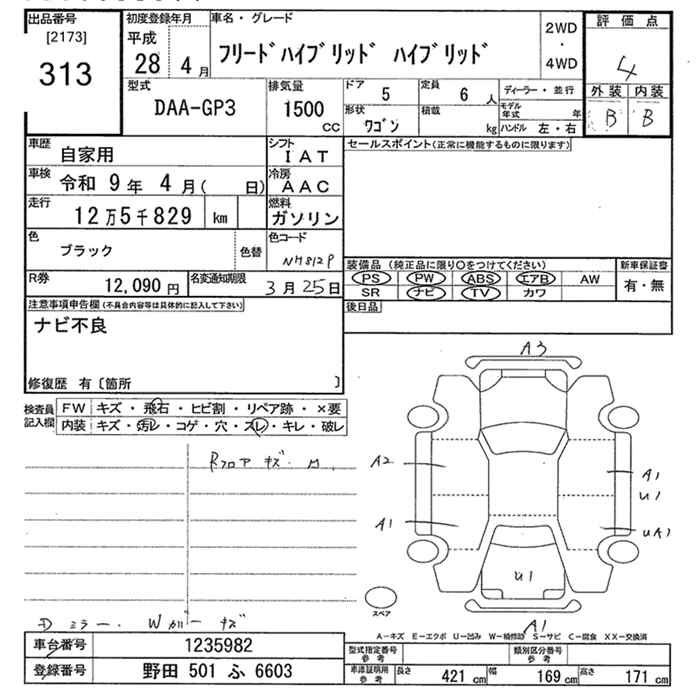 出品番号 初度登録年月 車名・グレード 評価点
[2173] 平成 2WD
313 28 4月 フリードハイブリッド ハイブリッド ・
4WD 4
型式 排気量 ドア 5 定員 6人 ディーラー・並行 外装 内装
DAA-GP3 1500 モデル年式 年 B B
cc 形状 ワゴン 積載 kg ハンドル 左・右
車歴 自家用 シフト IAT セールスポイント(正常に機能するものに限ります)
車検 令和 9年 4月( 日) 冷房 AAC
走行 12万5千829 km 燃料 ガソリン
色 ブラック 色替 色コード NH812P
装備品 (純正品に限り〇をつけてください) 新車保証書
PS PW ABS エアB AW 有・無
SR ナビ TV カワ
R券 12,090円 名変通知期限 3月25日
後日品
注意事項申告欄(不具合内容等は具体的に記入して下さい)
ナビ不良
修復歴 有〔箇所 〕
検査員記入欄 FW キズ・飛石・ヒビ割・リペア跡・×要
内装 キズ・汚レ・コゲ・穴・スレ・キレ・破レ
A3
Rフロア キズ・
A2 A1
U1
A1 UA1
U1
スペア
A1
Dミラー・Wガー キズ
A−キズ E−エクボ U−凹み W−補修跡 S−サビ C−腐食 XX−交換済
車台番号 1235982 型式指定番号 参考 類別区分番号 参考
登録番号 野田 501 ふ 6603 車庫証明用 参考 長さ 421cm 幅 169cm 高さ 171cm